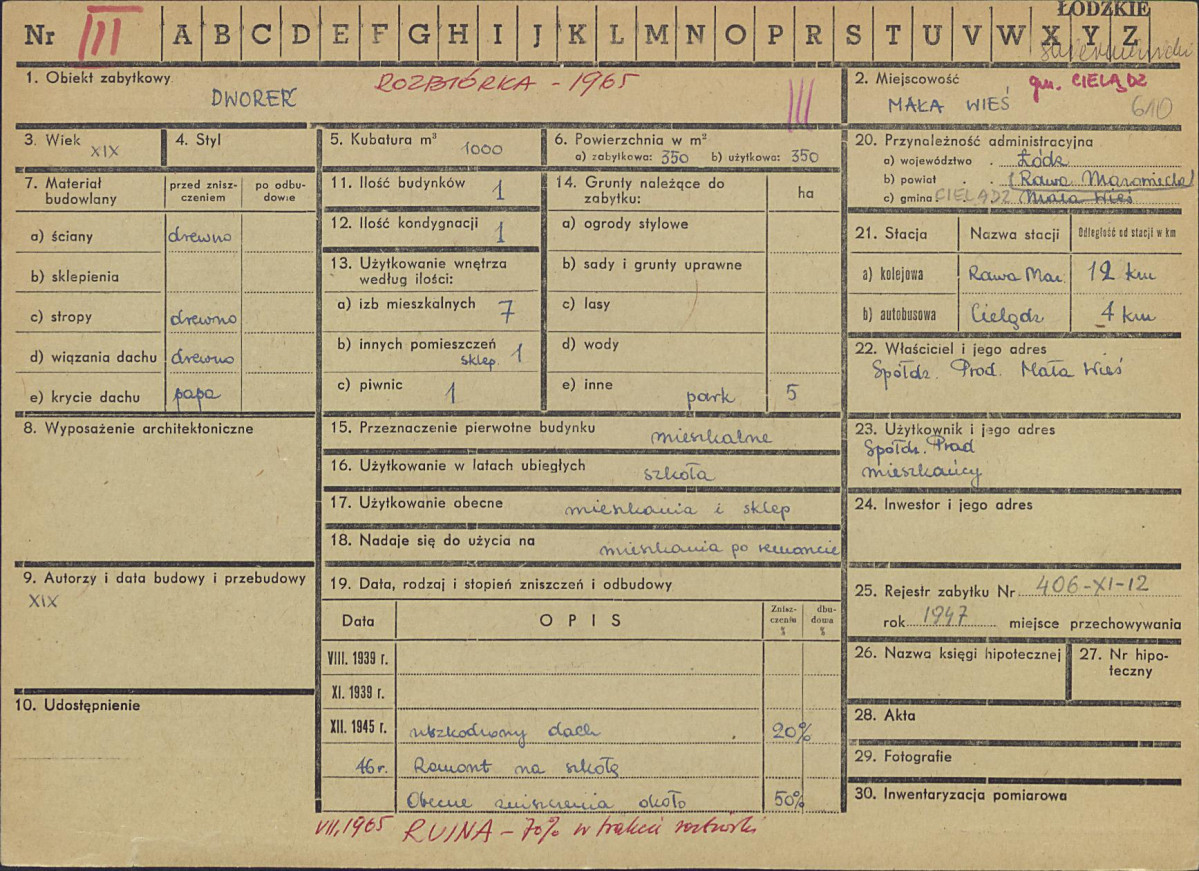 ŁÓDZKIE
Nr III A B C D E F G H I J K L M N O P R S T U V W X Y Z
1. Obiekt zabytkowy
ROZBIÓRKA - 1965
DWOREK
III
2. Miejscowość
gm. CIELĄDZ
MAŁA WIEŚ
610
3. Wiek XIX
4. Styl
5. Kubatura m³ 1000
6. Powierzchnia w m²
a) zabytkowa: 350 b) użytkowa: 350
7. Materiał budowlany
przed zniszczeniem
po odbudowie
a) ściany drewno
b) sklepienia
c) stropy drewno
d) wiązania dachu drewno
e) krycie dachu papa
8. Wyposażenie architektoniczne
9. Autorzy i data budowy i przebudowy
XIX
10. Udostępnienie
11. Ilość budynków 1
12. Ilość kondygnacji 1
13. Użytkowanie wnętrza
według ilości:
a) izb mieszkalnych 7
b) innych pomieszczeń
sklep. 1
c) piwnic 1
14. Grunty należące do
zabytku:
ha
a) ogrody stylowe
b) sady i grunty uprawne
c) lasy
d) wody
e) inne park 5
15. Przeznaczenie pierwotne budynku mieszkalne
16. Użytkowanie w latach ubiegłych szkoła
17. Użytkowanie obecne mieszkania i sklep
18. Nadaje się do użycia na mieszkania po remoncie
19. Data, rodzaj i stopień zniszczeń i odbudowy
Data OPIS Zniszczeniu % dbudowa %
VIII. 1939 r.
XI. 1939 r.
XII. 1945 r. uszkodzony dach 20%
46 r. Remont na szkołę
Obecne zniszczenia około 50%
VII, 1965 RUINA - 70% w trakcie rozbiórki
20. Przynależność administracyjna
a) województwo Łódź
b) powiat (Rawa Mazowiecka)
c) gmina CIELĄDZ Mała Wieś
21. Stacja Nazwa stacji Odległość od stacji w km
a) kolejowa Rawa Maz. 12 km
b) autobusowa Cielądz 4 km
22. Właściciel i jego adres
Spółdz. Prod. Mała Wieś
23. Użytkownik i jego adres
Spółdz. Prod
mieszkańcy
24. Inwestor i jego adres
25. Rejestr zabytku Nr 406-XI-12
rok 1947 miejsce przechowywania
26. Nazwa księgi hipotecznej
27. Nr hipoteczny
28. Akta
29. Fotografie
30. Inwentaryzacja pomiarowa